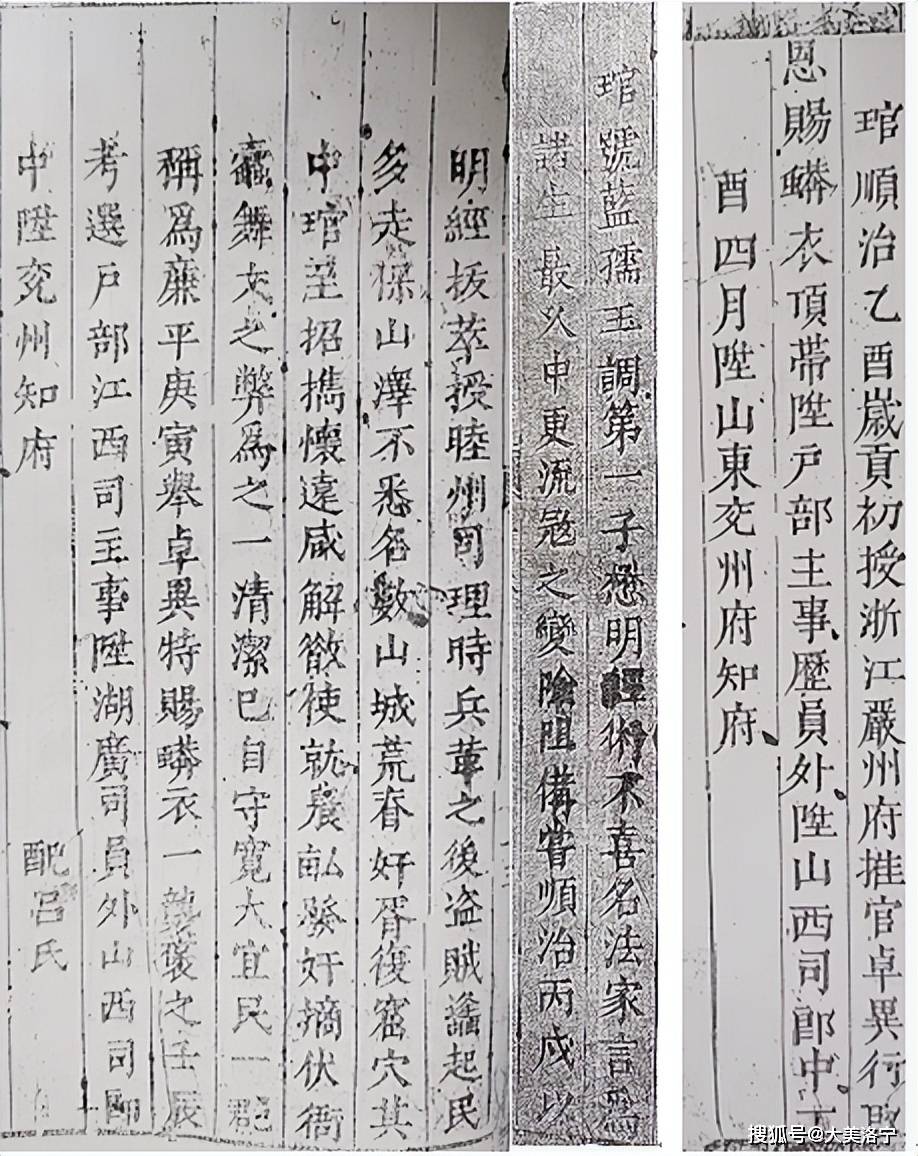 琯順治乙酉歲貢初授浙江嚴州府推官卓異行取
恩賜蟒衣頂帶陞戶部主事歷員外陞山西司郎中丁
酉四月陞山東兗州府知府
琯號藍孺玉調第一子懋明經術不喜名法家言為
諸生最久中更流寇之變險阻備嘗順治丙戌以
明經拔萃授睦州司理時兵革之後盗賊蠭起民
多走保山澤不悉名數山城荒脊奸胥復窟穴其
中琯至招攜懷遠咸解散使就農畝發奸摘伏衙
蠹舞文之弊爲之一清潔已自守寬大宜民一郡
稱爲廉平庚寅舉卓異特賜蟒衣一襲褒之壬辰
考選戶部江西司主事陞湖廣司員外山西司郎
中陞兗州知府 配呂氏
搜狐号@大美洛宁